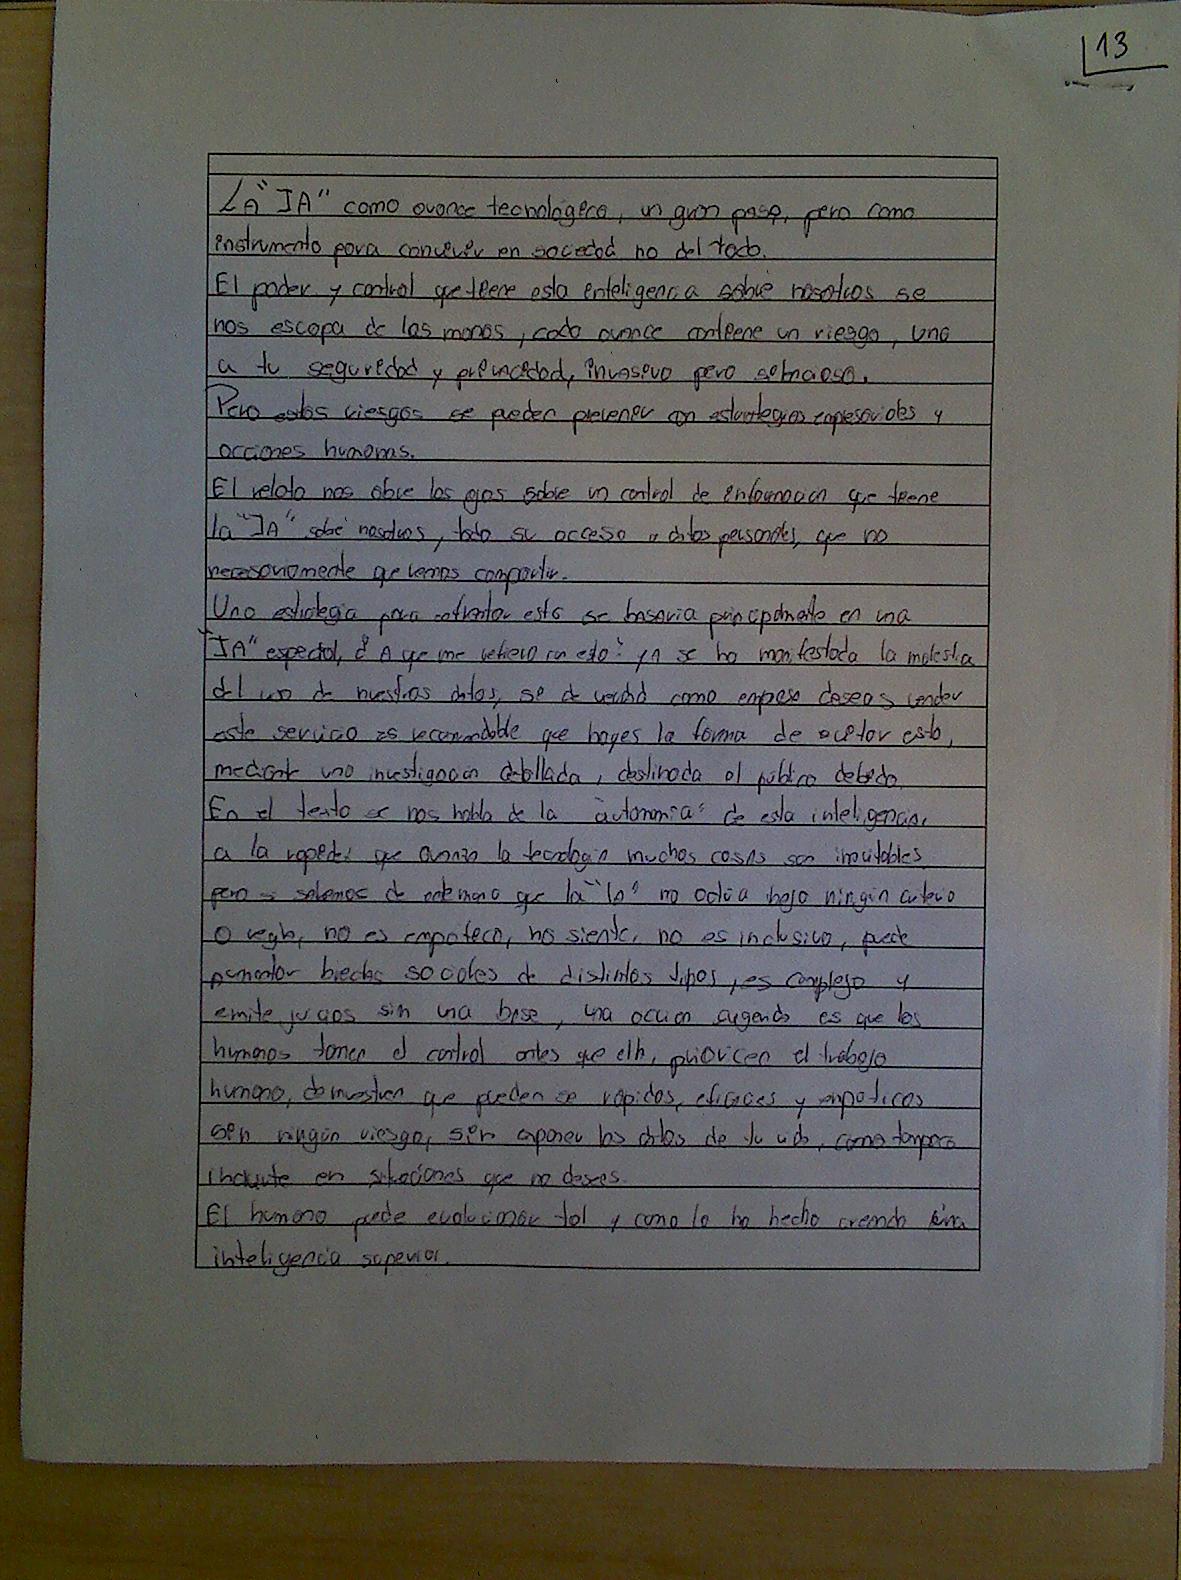 13
La "IA" como avance tecnológico, un gran paso, pero como
instrumento para convivir en sociedad no del todo.
El poder y control que tiene esta inteligencia sobre nosotros se
nos escapa de las manos, cada avance contiene un riesgo, uno
a tu seguridad y privacidad, invasivo pero silencioso.
Pero estos riesgos se pueden prevenir con estrategias empresariales y
acciones humanas.
El relato nos abre los ojos sobre un control de información que tiene
la "IA" sobre nosotros, todo su acceso a datos personales, que no
necesariamente queremos compartir.
Una estrategia para enfrentar esto se basaria principalmente en una
"IA" especial, ¿A que me refiero con esto? ya se ha manifestada la molestia
del uso de nuestros datos, si de verdad como empresa deseas vender
este servicio es recomendable que hayes la forma de acetar esto,
mediante una investigación detallada, destinada al público debido.
En el texto se nos habla de la "autonomía" de esta inteligencia,
a la rapidez que avanza la tecnología muchas cosas son inevitables
pero si sabemos de antemano que la "IA" no actúa bajo ningún criterio
o regla, no es empatico, no siente, no es inclusivo, puede
aumentar brechas sociales de distintos tipos, es complejo y
emite juicios sin una base, una acción urgente es que los
humanos tomen el control antes que ella, prioricen el trabajo
humano, demuestren que pueden ser rápidos, eficaces y empáticos
sin ningún riesgo, sin exponer los datos de tu vida, como tampoco
incluirte en situaciones que no desees.
El humano puede evolucionar tal y como lo ha hecho creando una
inteligencia superior.